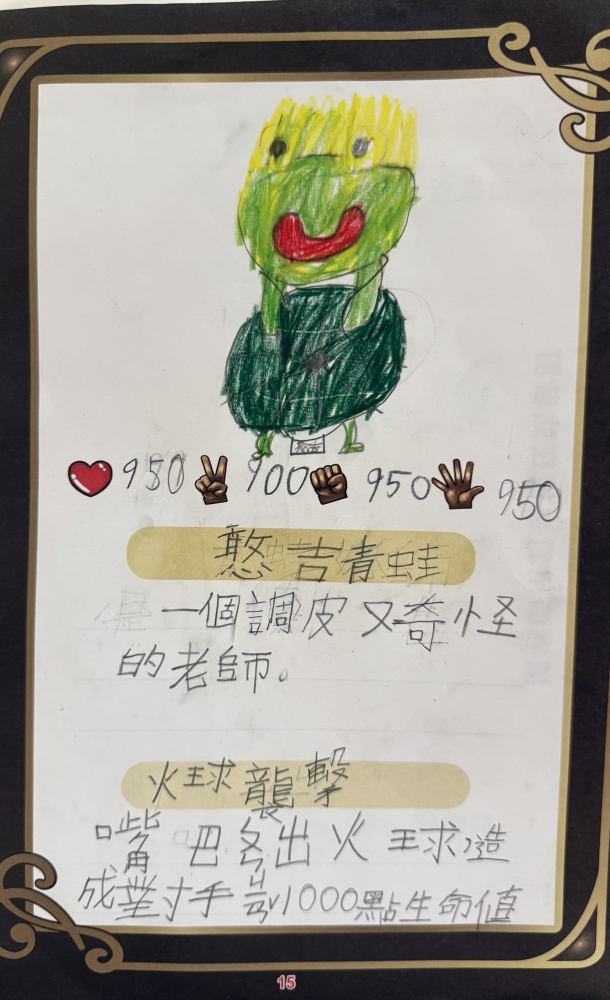 950 900 950 950
憨吉青蛙
是一個調皮又奇怪
的老師。
火球襲擊
嘴巴各出火球造
成對手1000點生命值
15